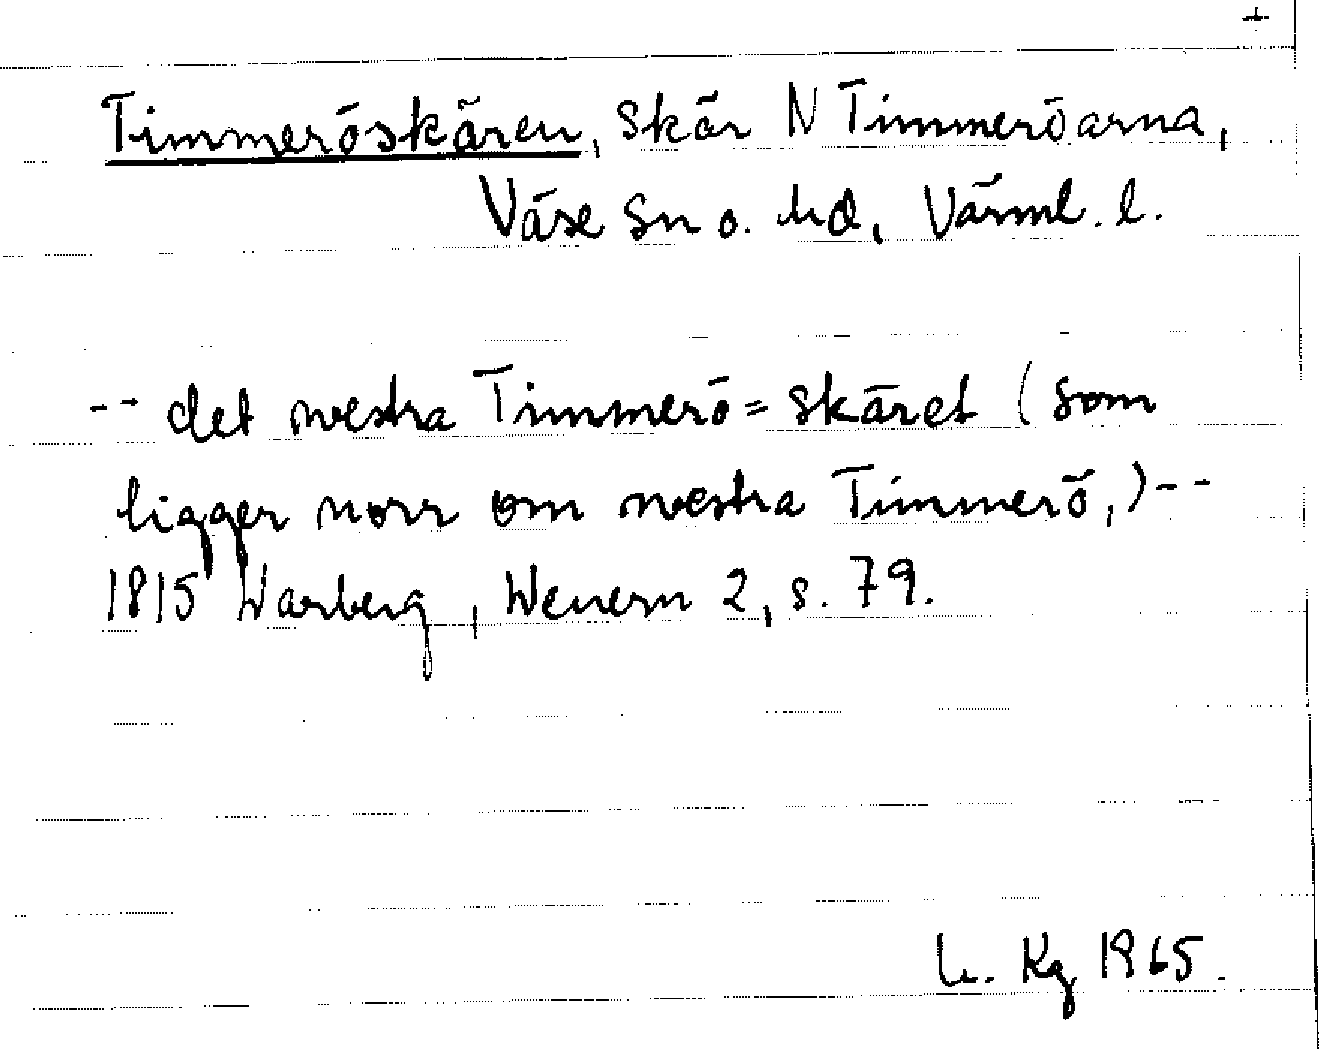 +
Timmeröskären, skär N Timmeröarna,
Väse sn o. hd, Värml. l.
-- det westra Timmerö=skäret (som
ligger norr om westra Timmerö,) --
1815 Warberg, Wenern 2, s. 79.
h. Kg 1965.